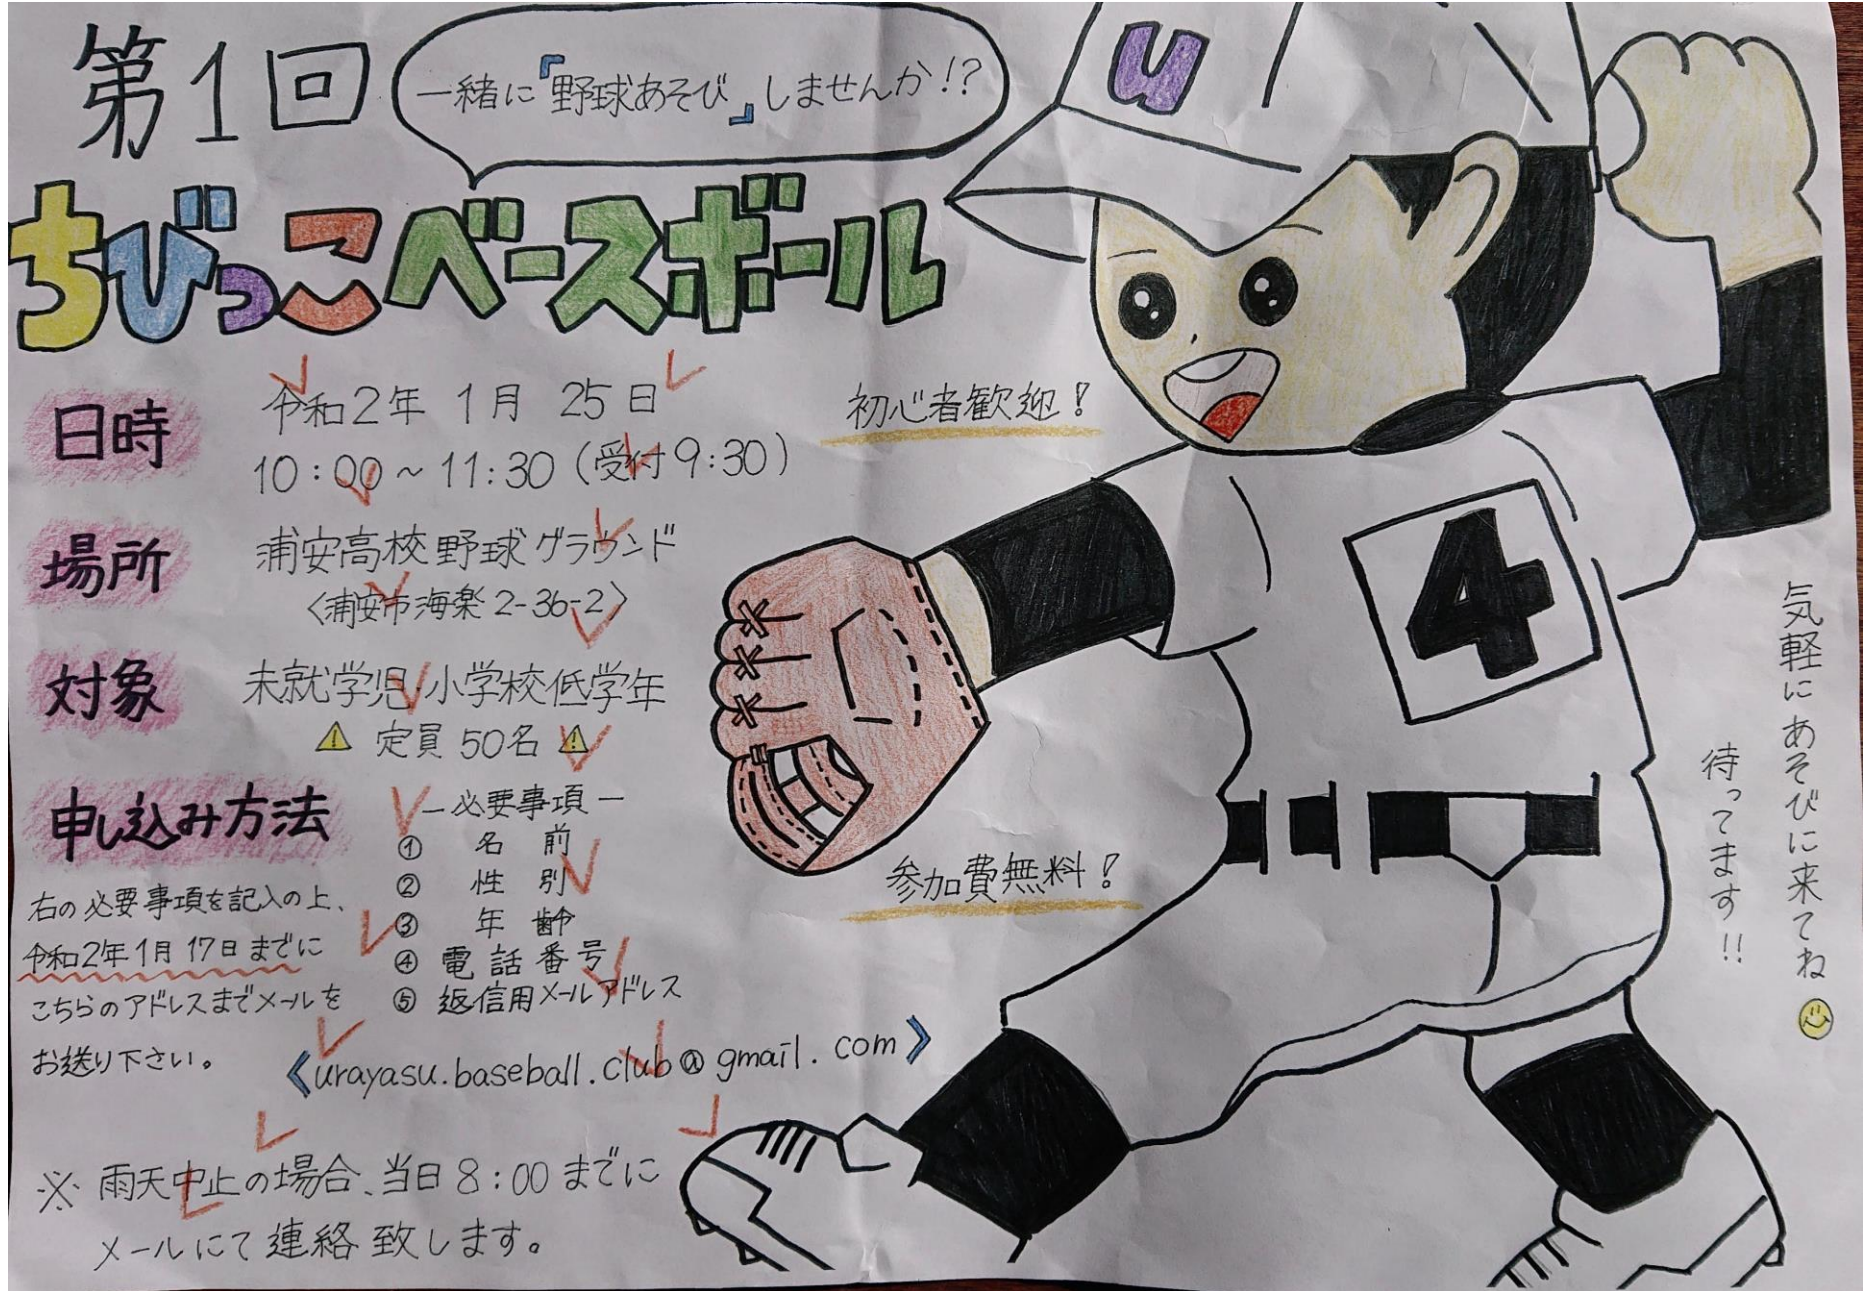 第1回
一緒に『野球あそび』しませんか!?
ちびっこベースボール
U
日時
令和2年 1月 25日
10:00~11:30(受付9:30)
初心者歓迎!
場所
浦安高校野球グラウンド
〈浦安市海楽2-36-2〉
4
対象
未就学児・小学校低学年
⚠ 定員50名 ⚠
申し込み方法
右の必要事項を記入の上、
令和2年1月17日までに
こちらのアドレスまでメールを
お送り下さい。
―必要事項―
① 名前
② 性別
③ 年齢
④ 電話番号
⑤ 返信用メールアドレス
《urayasu.baseball.club@gmail.com》
参加費無料!
気軽にあそびに来てね
待ってます!!
※ 雨天中止の場合、当日8:00までに
メールにて連絡致します。